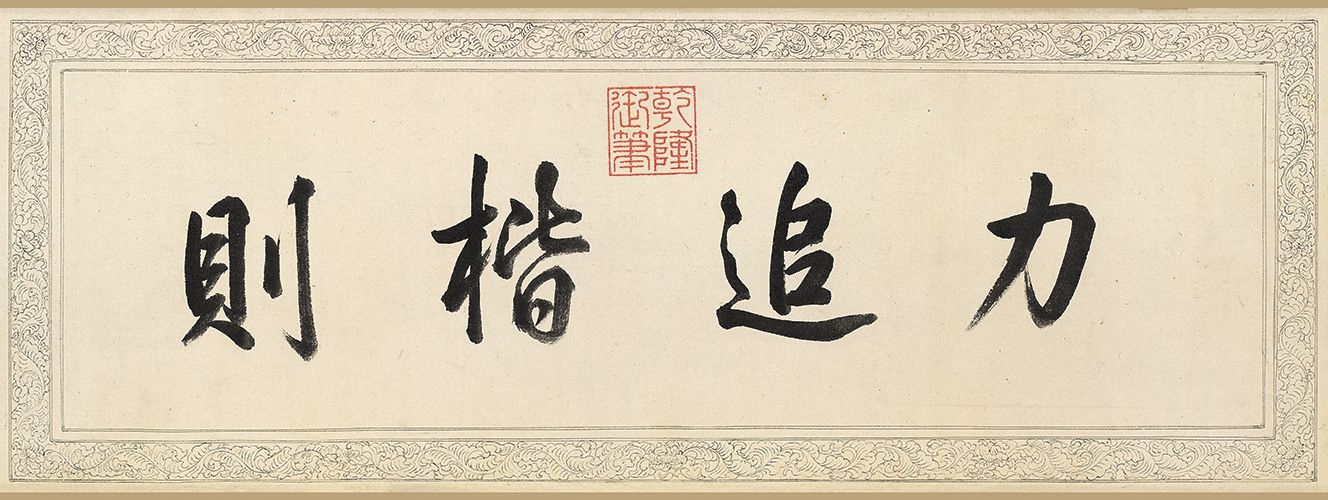 力追楷則
乾隆
御筆